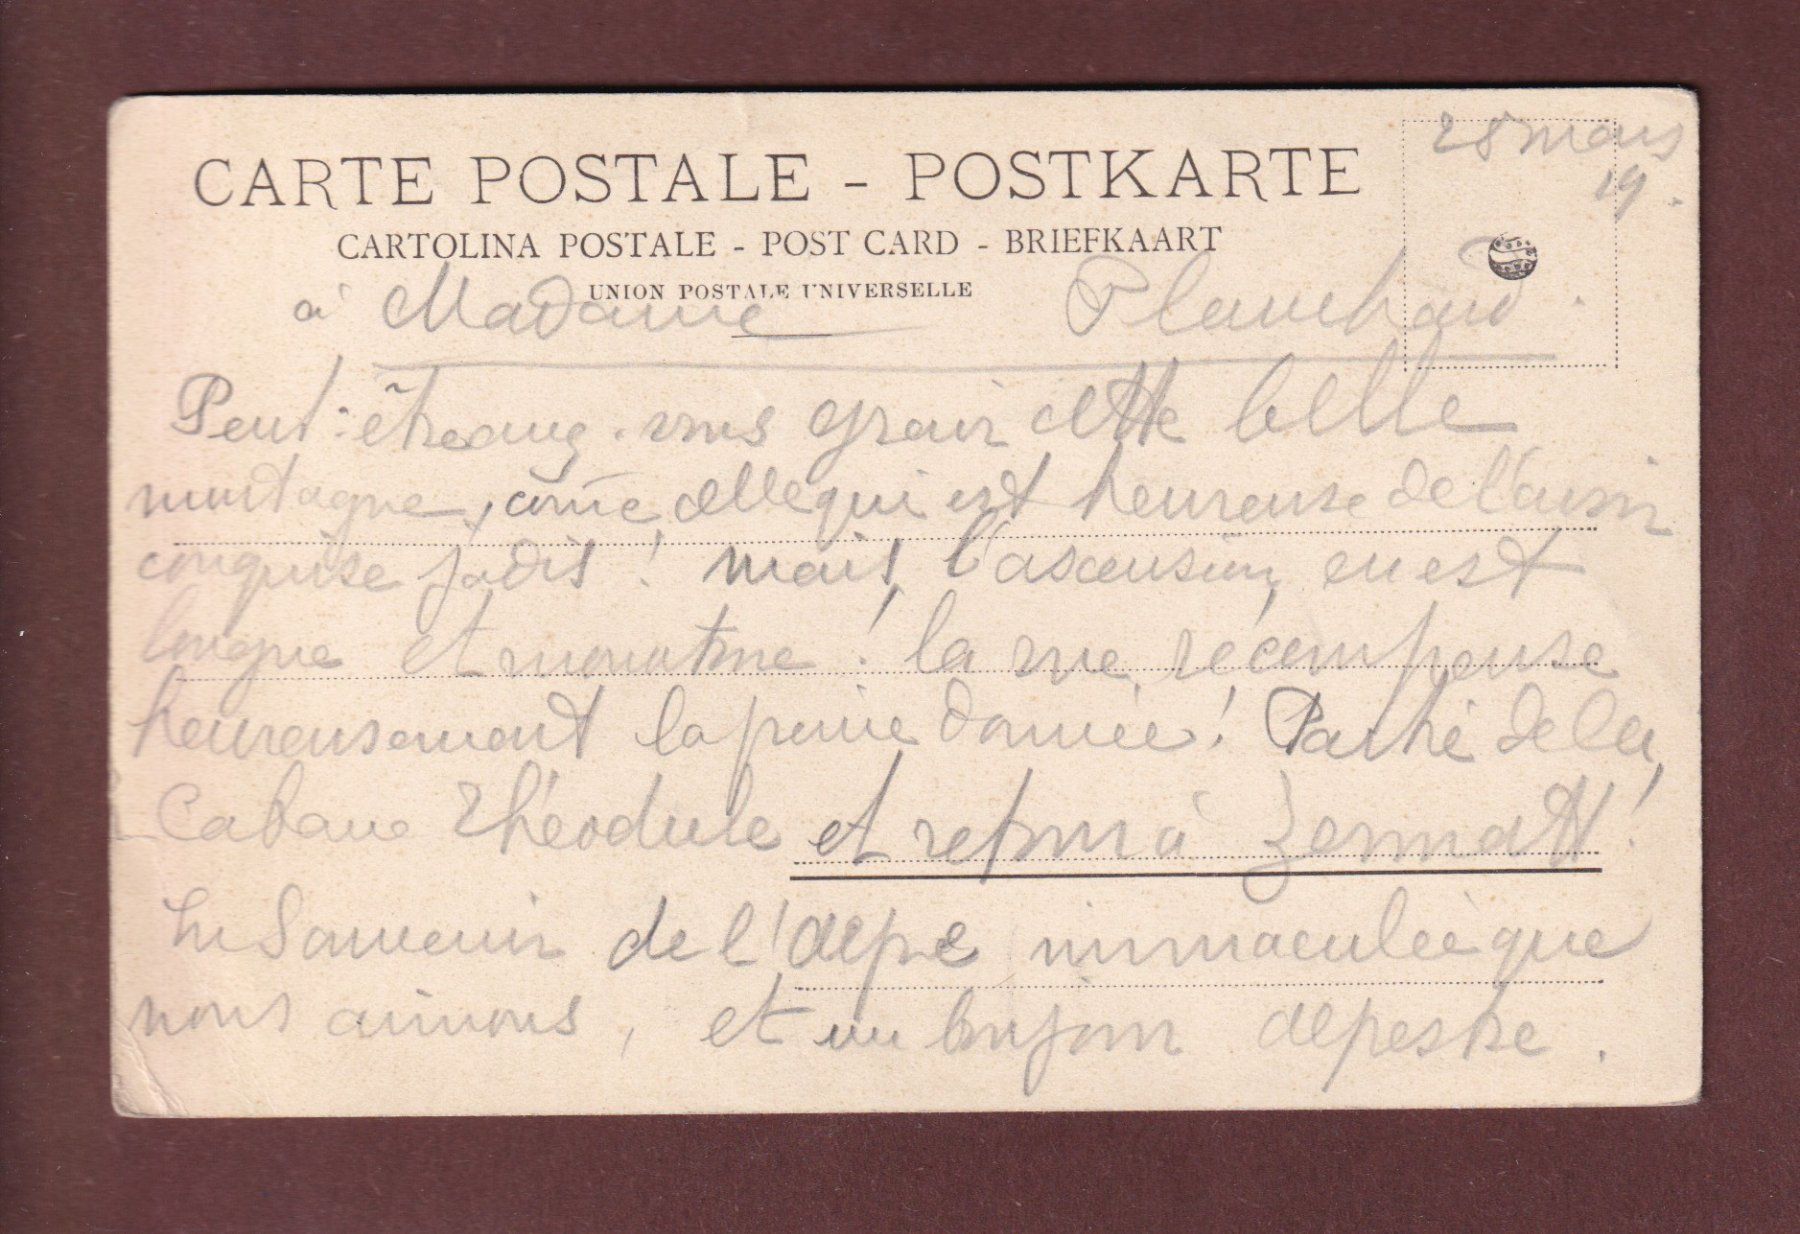 28 mars
19.
CARTE POSTALE - POSTKARTE
CARTOLINA POSTALE - POST CARD - BRIEFKAART
UNION POSTALE UNIVERSELLE
à Madame Planchard.
Peut-être avez-vous gravi cette belle
montagne, cõme celle qui est heureuse de l'avoir
conquise jadis ! mais, l'ascension, en est
longue et monotone ! la vue récompense
heureusement la peine donnée ! Parti de la
Cabane Théodule et retour à Zermatt !
Un Souvenir de l'alpe immaculée que
nous aimons, et un bonjour alpestre.